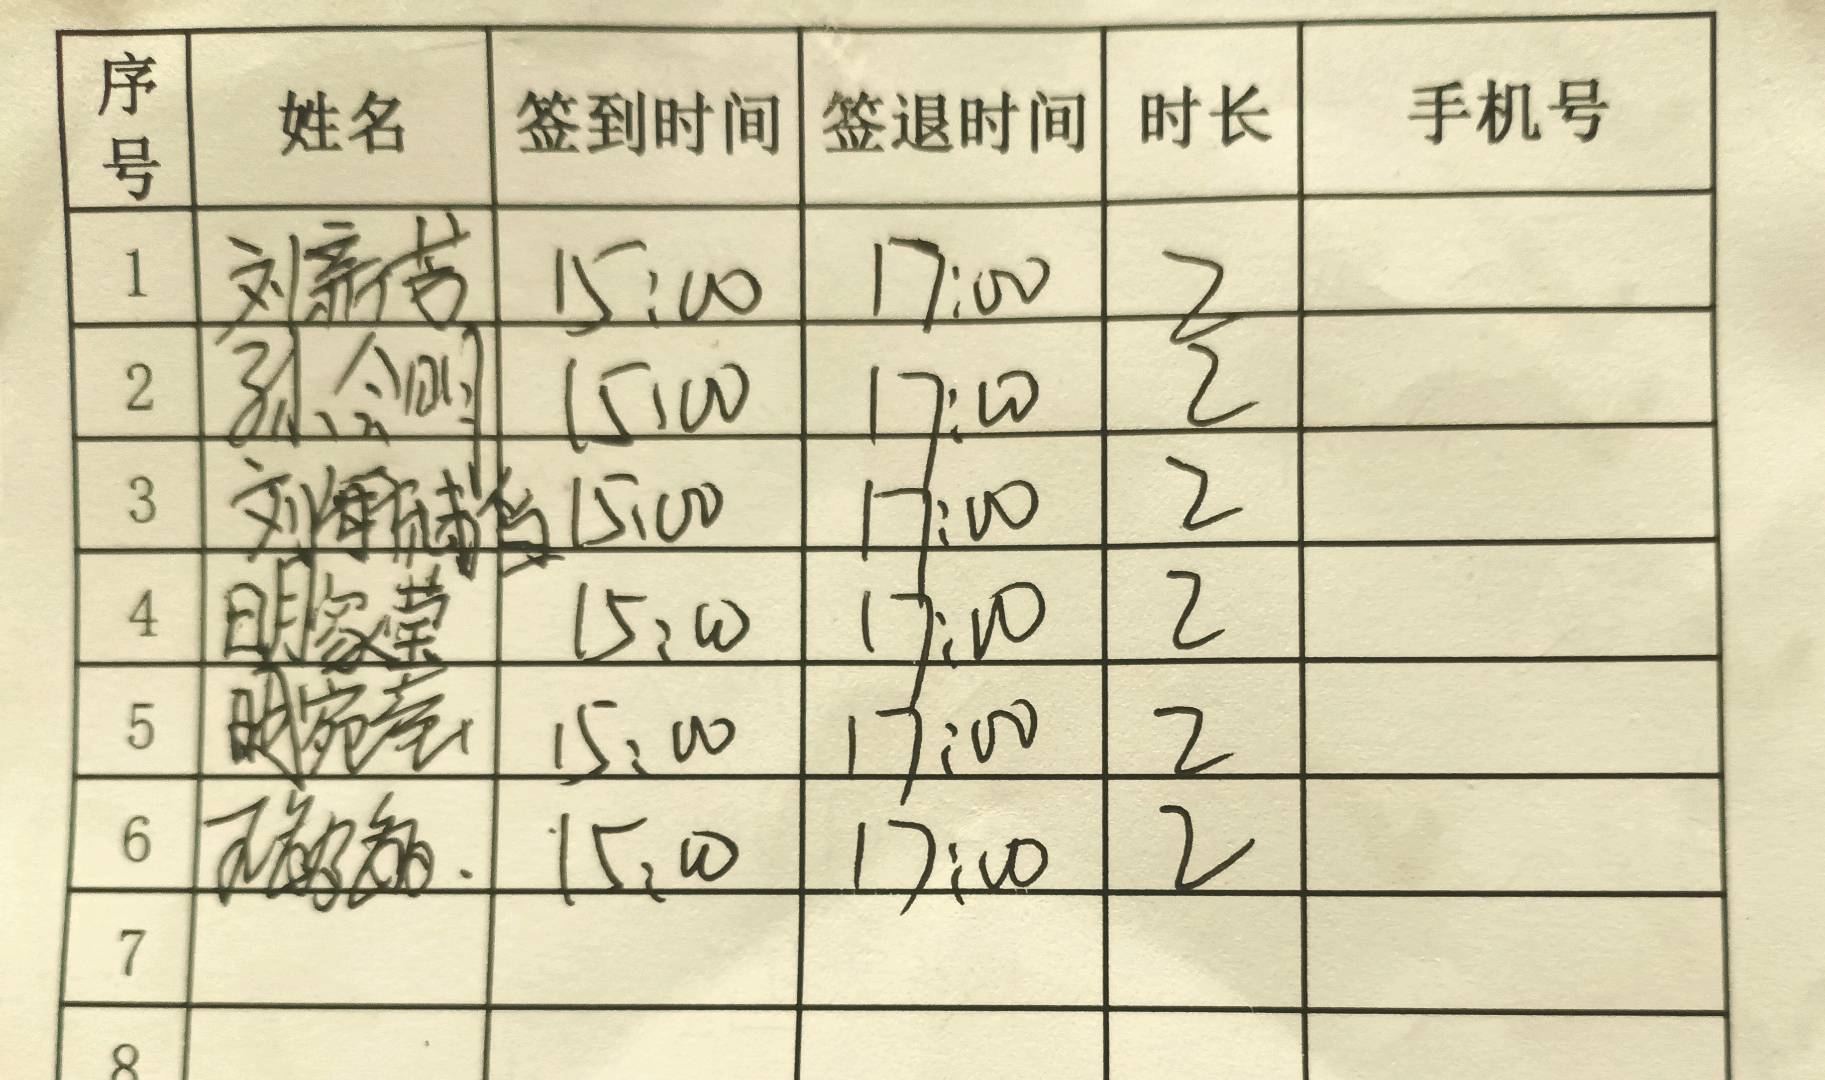 序号 姓名 签到时间 签退时间 时长 手机号
1 刘新 15:00 17:00 2
2 孙 15:00 17:00 2
3 刘 15:00 17:00 2
4 明家莹 15:00 17:00 2
5 明宛莹 15:00 17:00 2
6 15:00 17:00 2
7
8